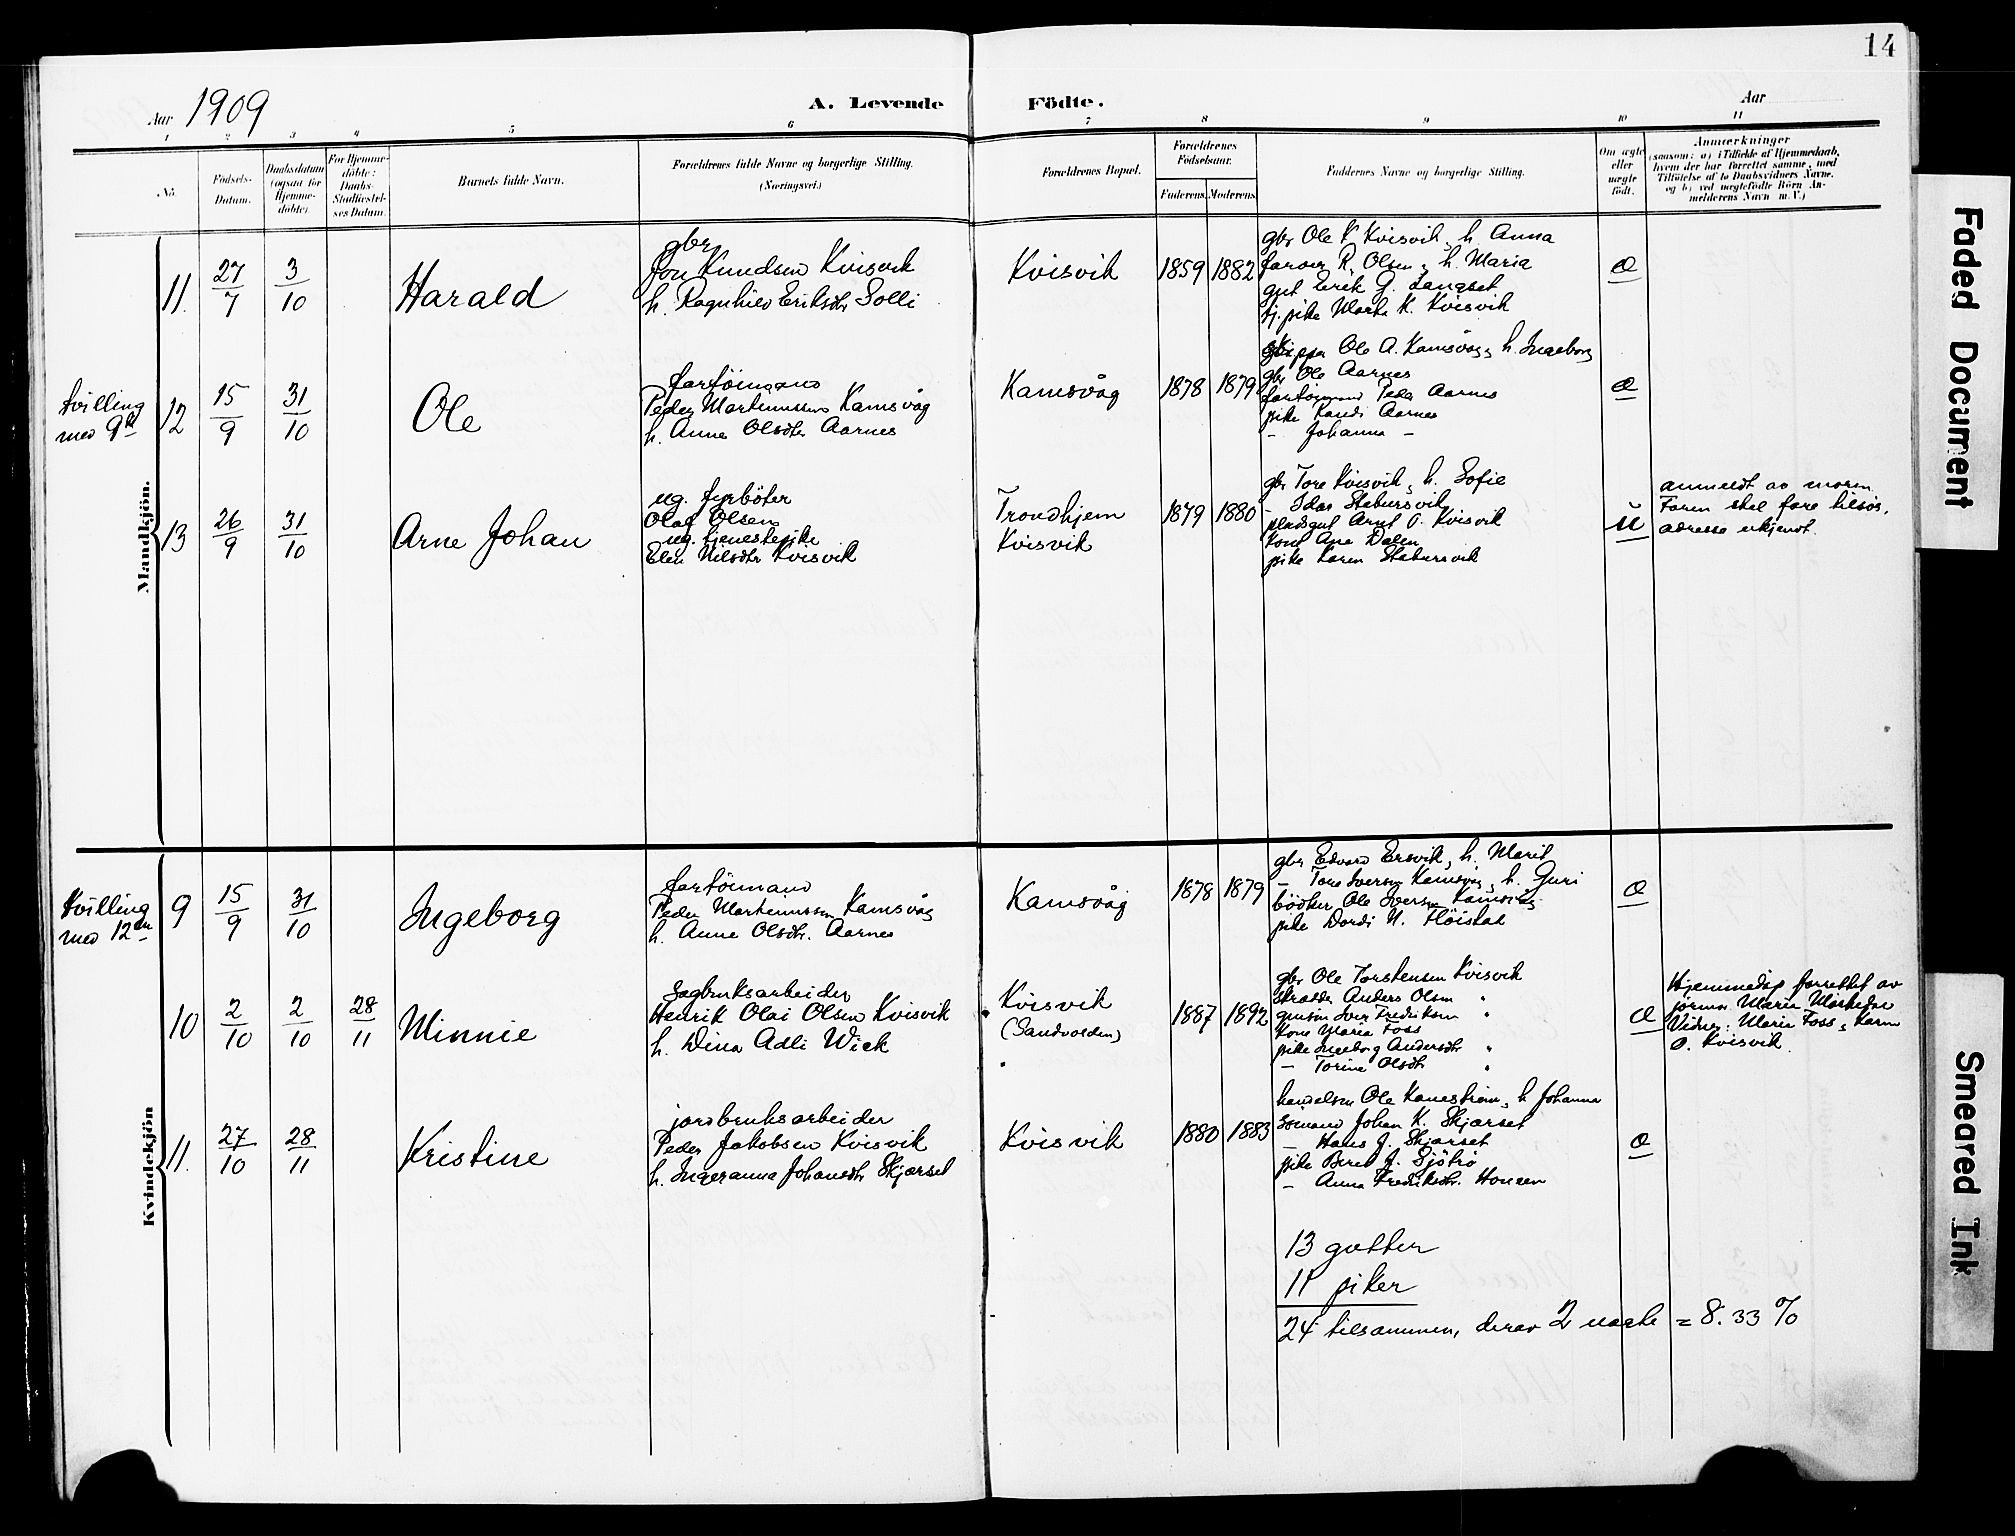 14
Aar 1909
A. Levende Födte.
Aar
1 2 3 4 5 6 7 8 9 10 11
No.
Födsels-
Datum.
Daabsdatum
(ogsaa for
Hjemme-
döbte)
For Hjemme-
döbte:
Daabs-
Stadfæstel-
ses Datum.
Barnets fulde Navn.
Forældrenes fulde Navne og borgerlige Stilling.
(Næringsvei.)
Forældrenes Bopæl.
Forældrenes
Födselsaar.
Faderens. Moderens.
Faddernes Navne og borgerlige Stilling.
Om ægte
eller
uægte
född.
Anmærkninger
(saasom: a) i Tilfælde af Hjemmedaab,
hvem der har forrettet samme, med
Tilföielse af to Daabsvidners Navne,
og b) ved uægtefödte Börn An-
melderens Navn m. V.)
Mandkjön.
11. 27/7 3/10
Harald
gbr
Jon Knudsen Kvisvik
h. Ragnhild Eriksdtr Solli
Kvisvik
1859 1882
gbr Ole K Kvisvik, h. Anna
R. Olsen, h. Maria
gut Erik G. Langset
tj. pike Marta K. Kvisvik
æ
tvilling
med 9de
12 15/9 31/10
Ole
fartöimand
Peder Martinussen Kamsvåg
h. Anne Olsdtr Aarnes
Kamsvåg
1878 1879
skipper Ole A. Kamsvåg, h. Ingeborg
gbr Ole Aarnes
fartöimand Peder Aarnes
pike Randi Aarnes
- Johanna -
æ
13 26/9 31/10
Arne Johan
ug. fyrböter
Olaf Olsen
ug. tjenestepike
Elen Nilsdtr Kvisvik
Trondhjem
Kvisvik
1879 1880
gbr Tore Kvisvik, h. Sofie
- Idar Stabersvik
pladsgut Arnt O. Kvisvik
kone Ane Dalen
pike Karen Stabersvik
u
anmeldt av moren.
Faren skal fare tilsös,
adresse ukjendt.
Kvindekjön
tvilling
med 12te
9 15/9 31/10
Ingeborg
fartöimand
Peder Martinussen Kamsvåg
h. Anne Olsdtr. Aarnes
Kamsvåg
1878 1879
gbr Edvard Ersvik, h. Marit
- Tore Iversen Kamsvåg, h. Guri
bödker Ole Iversen Kamsvåg
pike Dordi N. Flöistad
æ
10 2/10 2/10 28/11
Minnie
Sagbruksarbeider
Henrik Olai Olsen Kvisvik
h. Dina Adli Wick
Kvisvik
(Sandvolden)
1887 1892
gbr Ole Torstensen Kvisvik
skrædder Anders Olsen "
Iver Fredriksen "
kone Maria Foss
pike Ingeborg Andersdtr "
- Torine Olsdtr "
æ
Hjemmedöp forrettet av
jorm. Marie
Vidner: Marie Foss, Karen
O. Kvisvik
11. 27/10 28/11
Kristine
jordbruksarbeider
Peder Jakobsen Kvisvik
h. Ingeranna Johansdtr Skjærset
Kvisvik
1880 1883
handelsm Ole Kanestrøm, h Johanna
sömand Johan K. Skjærset
- Hans J. Skjærset
pike Beret J. Sjöbrö
- Anna Fredriksdtr. Honsen
æ
13 gutter
11 piker
24 tilsammen, derav 2 uægte = 8.33 %
Faded Document
Smeared Ink